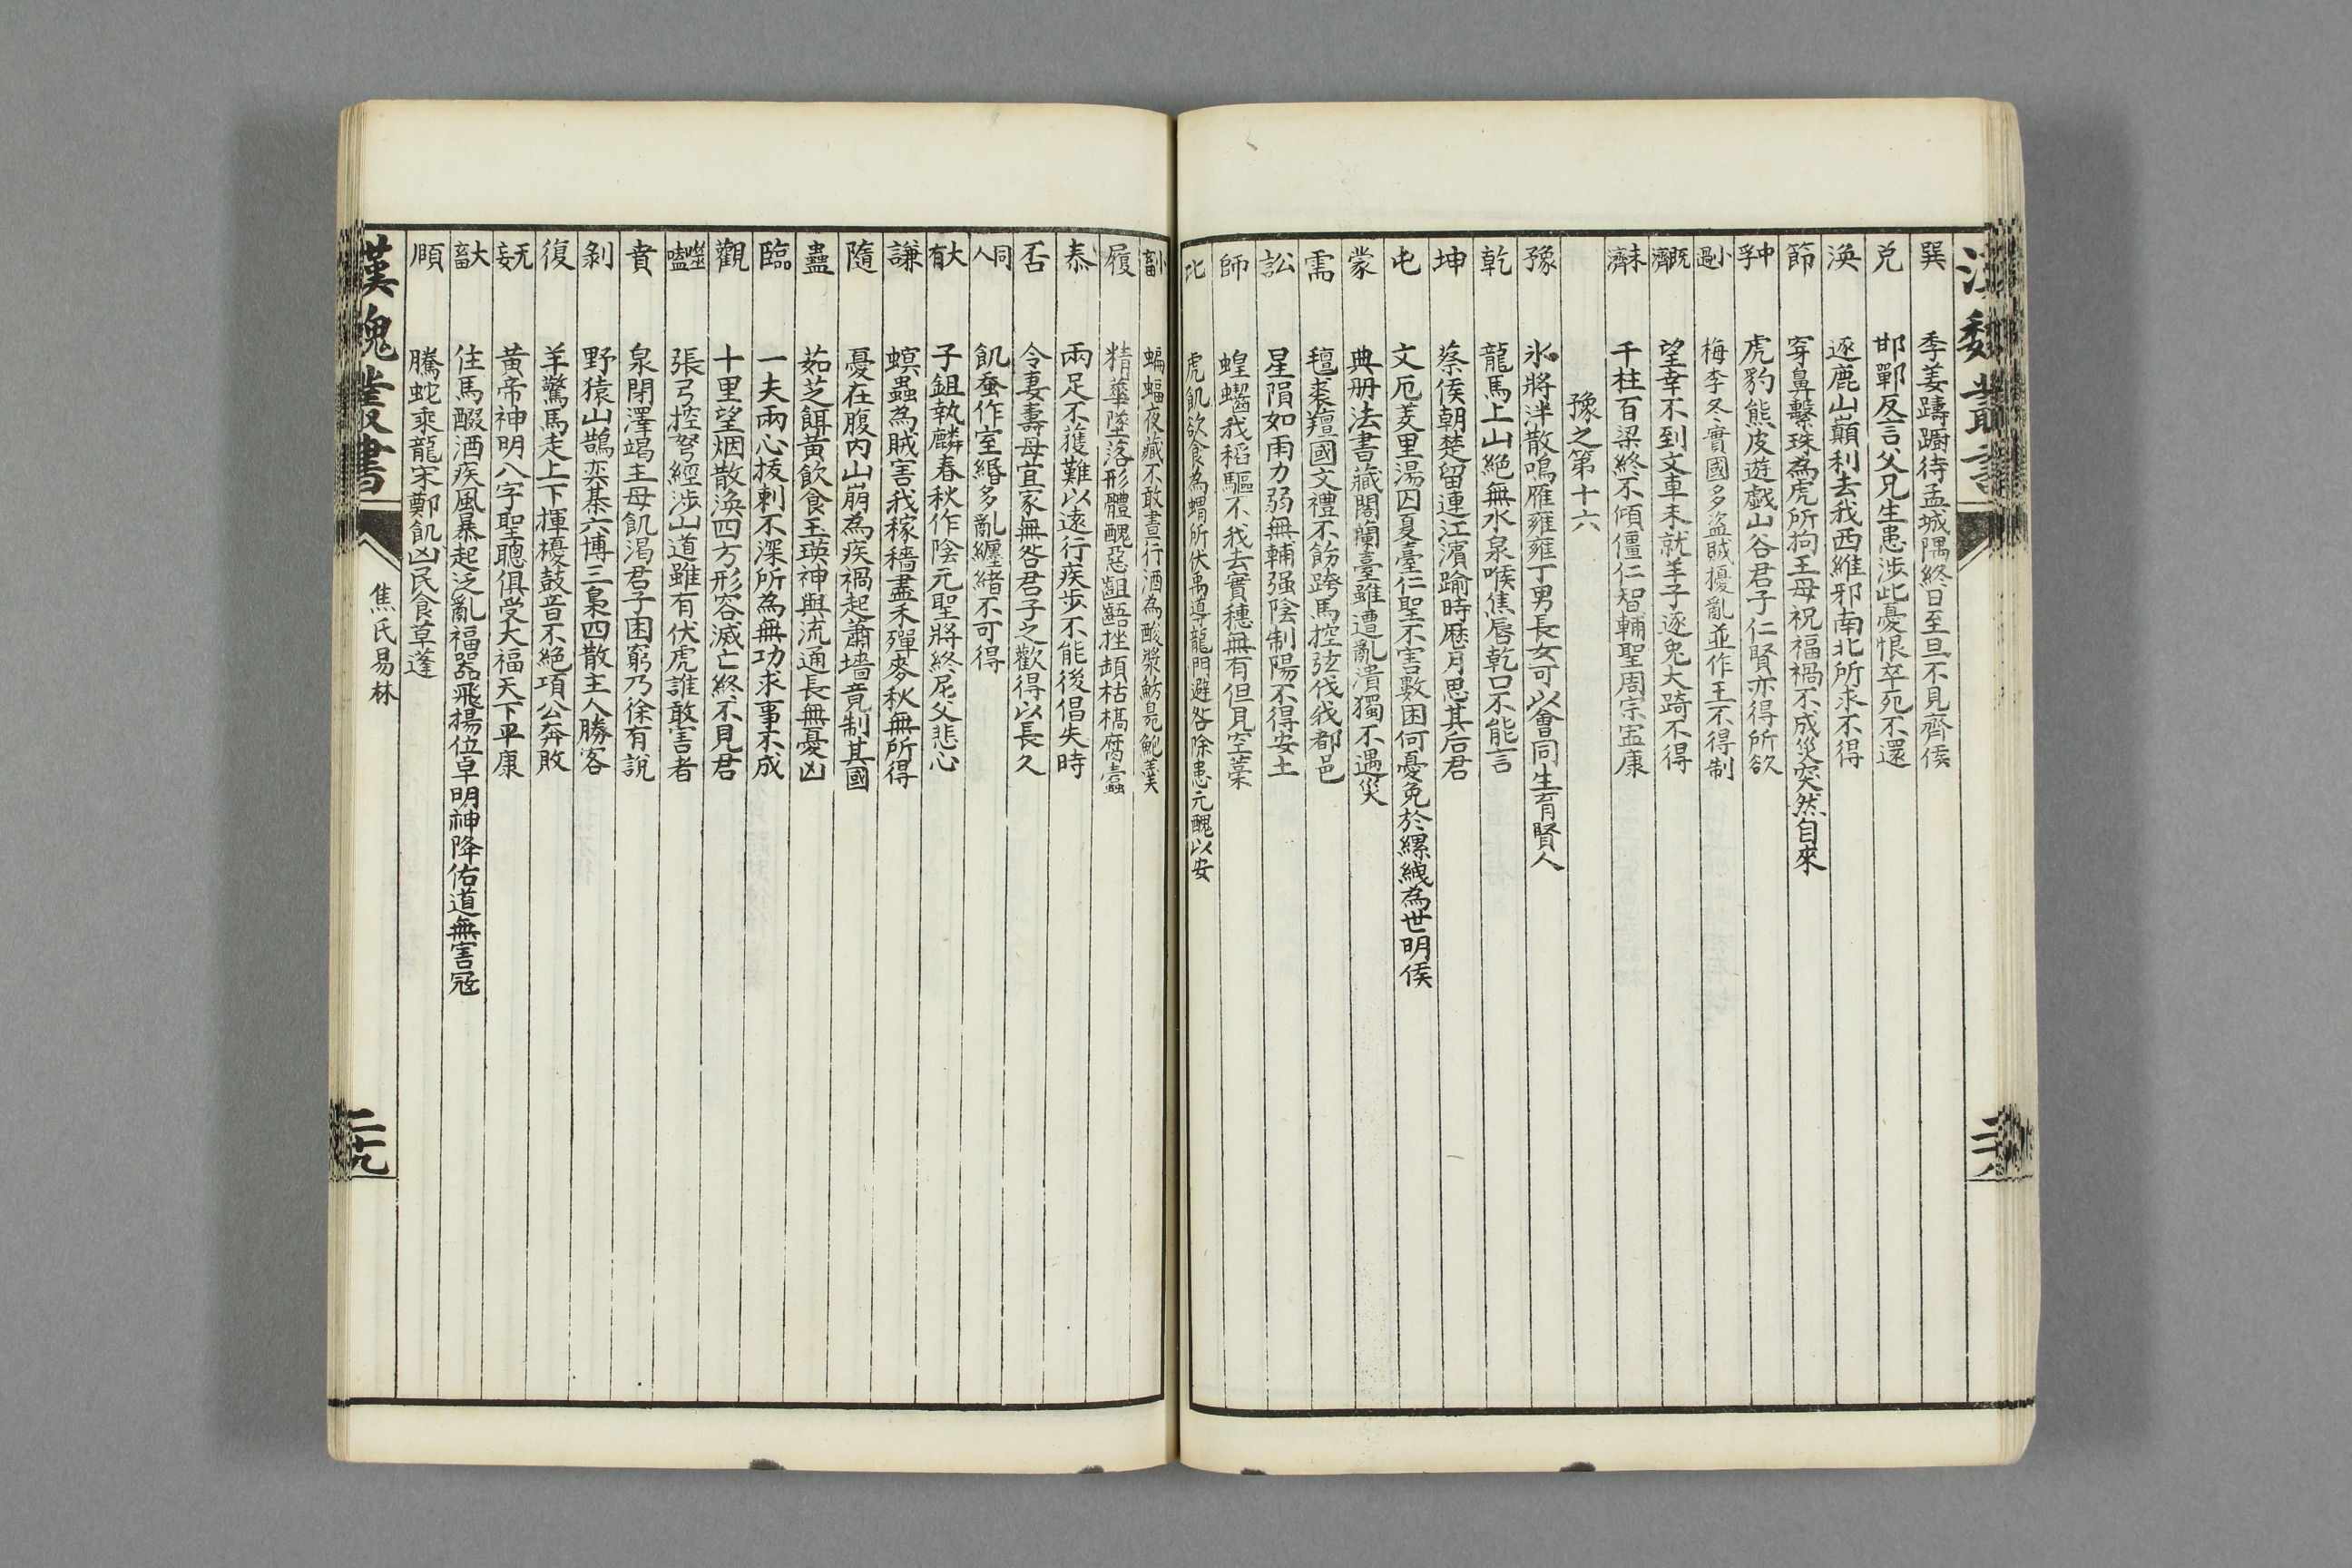 巽 季姜躊躕待孟城隅終日至旦不見齊侯
兌 邯鄲反言父兄生患涉此憂恨卒死不還
渙 逐鹿山巔利去我西維邪南北所求不得
節 穿鼻繫珠為虎所拘王母祝福禍不成災突然自來
中孚 虎豹熊皮遊戲山谷君子仁賢亦得所欲
小過 梅李冬實國多盜賊擾亂並作王不得制
既濟 望幸不到文車未就羊子逐兔大踦不得
未濟 千柱百梁終不傾僵仁智輔聖周宗寍康
豫之第十六
豫 氷將泮散鳴雁雍雍丁男長女可以會同生育賢人
乾 龍馬上山絕無水泉喉焦唇乾口不能言
坤 蔡侯朝楚留連江濱踰時歷月思其后君
屯 文厄羑里湯囚夏臺仁聖不害數困何憂免於縲絏為世明侯
蒙 典册法書藏閣蘭臺雖遭亂潰獨不遇災
需 氊裘羶國文禮不飭跨馬控弦伐我都邑
訟 星隕如雨力弱無輔强陰制陽不得安土
師 蝗齧我稻驅不我去實穗無有但見空藁
比 虎飢欲食為蝟所伏禹導龍門避咎除患元醜以安
小畜 蝙蝠夜藏不敢晝行酒為酸漿魴臭鮑羹
履 精華墜落形體醜惡齟齬挫頓枯槁腐蠹
泰 兩足不獲難以遠行疾步不能後倡失時
否 令妻壽母宜家無咎君子之歡得以長久
同人 飢蚕作室緡多亂纏緒不可得
大有 子鉏執麟春秋作陰元聖將終尼父悲心
謙 螟蟲為賊害我稼穡盡禾殫麥秋無所得
隨 憂在腹內山崩為疾禍起蕭墻竟制其國
蠱 茹芝餌黃飲食玉瑛神與流通長無憂凶
臨 一夫兩心拔剌不深所為無功求事不成
觀 十里望烟散渙四方形容滅亡終不見君
噬嗑 張弓控弩經涉山道雖有伏虎誰敢害者
賁 泉閉澤竭主母飢渴君子困窮乃徐有說
剝 野猿山鵲奕棊六博三梟四散主人勝客
復 羊驚馬走上下揮擾鼓音不絕項公奔敗
无妄 黃帝神明八字聖聰俱受大福天下平康
大畜 住馬醊酒疾風暴起泛亂福器飛揚位卓明神降佑道無害冦
頤 騰蛇乘龍宋鄭飢凶民食草蓬
漢魏叢書
焦氏易林
二十九